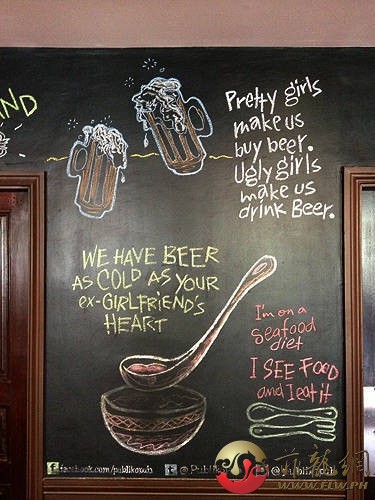 AND
Pretty girls
make us
buy beer.
Ugly girls
make us
drink Beer.
WE HAVE BEER
AS COLD AS YOUR
ex-GIRLFRIEND'S
HEART
I'm on a
seafood
diet
I SEE FOOD
and I eat it
facebook.com/publikopub
菲龍網
WWW.FLW.PH